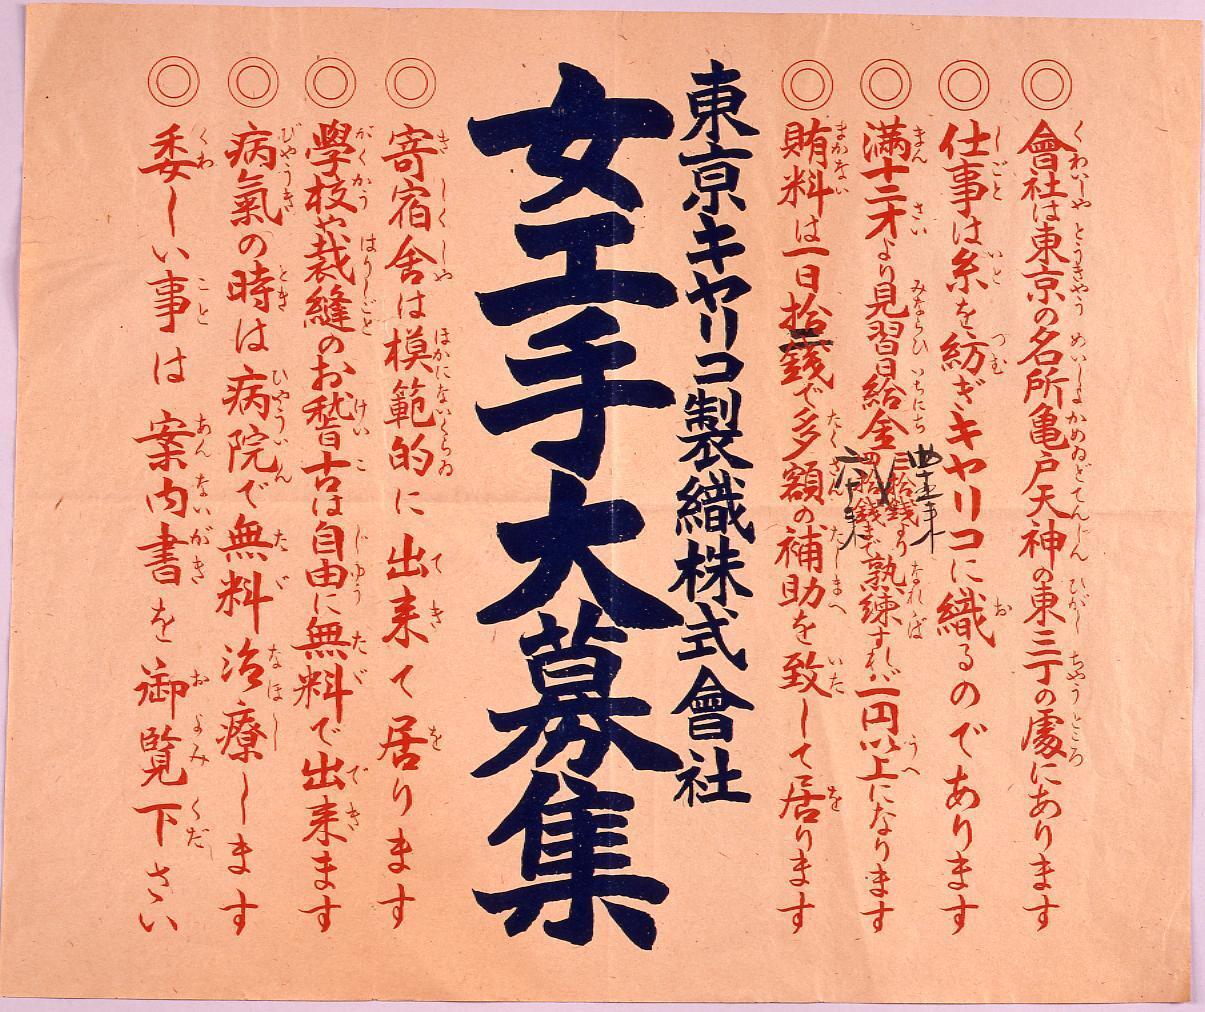 ◎會社は東京の名所亀戸天神の東三丁の處にあります
◎仕事は糸を紡ぎキヤリコに織るのであります
◎満十二才より見習日給金三拾銭より四拾銭まで熟練すれば一円以上になります
◎賄料は一日拾銭で多額の補助を致して居ります
東京キヤリコ製織株式會社
女工手大募集
◎寄宿舍は模範的に出来て居ります
◎學校や裁縫のお稽古は自由に無料で出来ます
◎病氣の時は病院で無料治療します
◎委しい事は案内書を御覧下さい